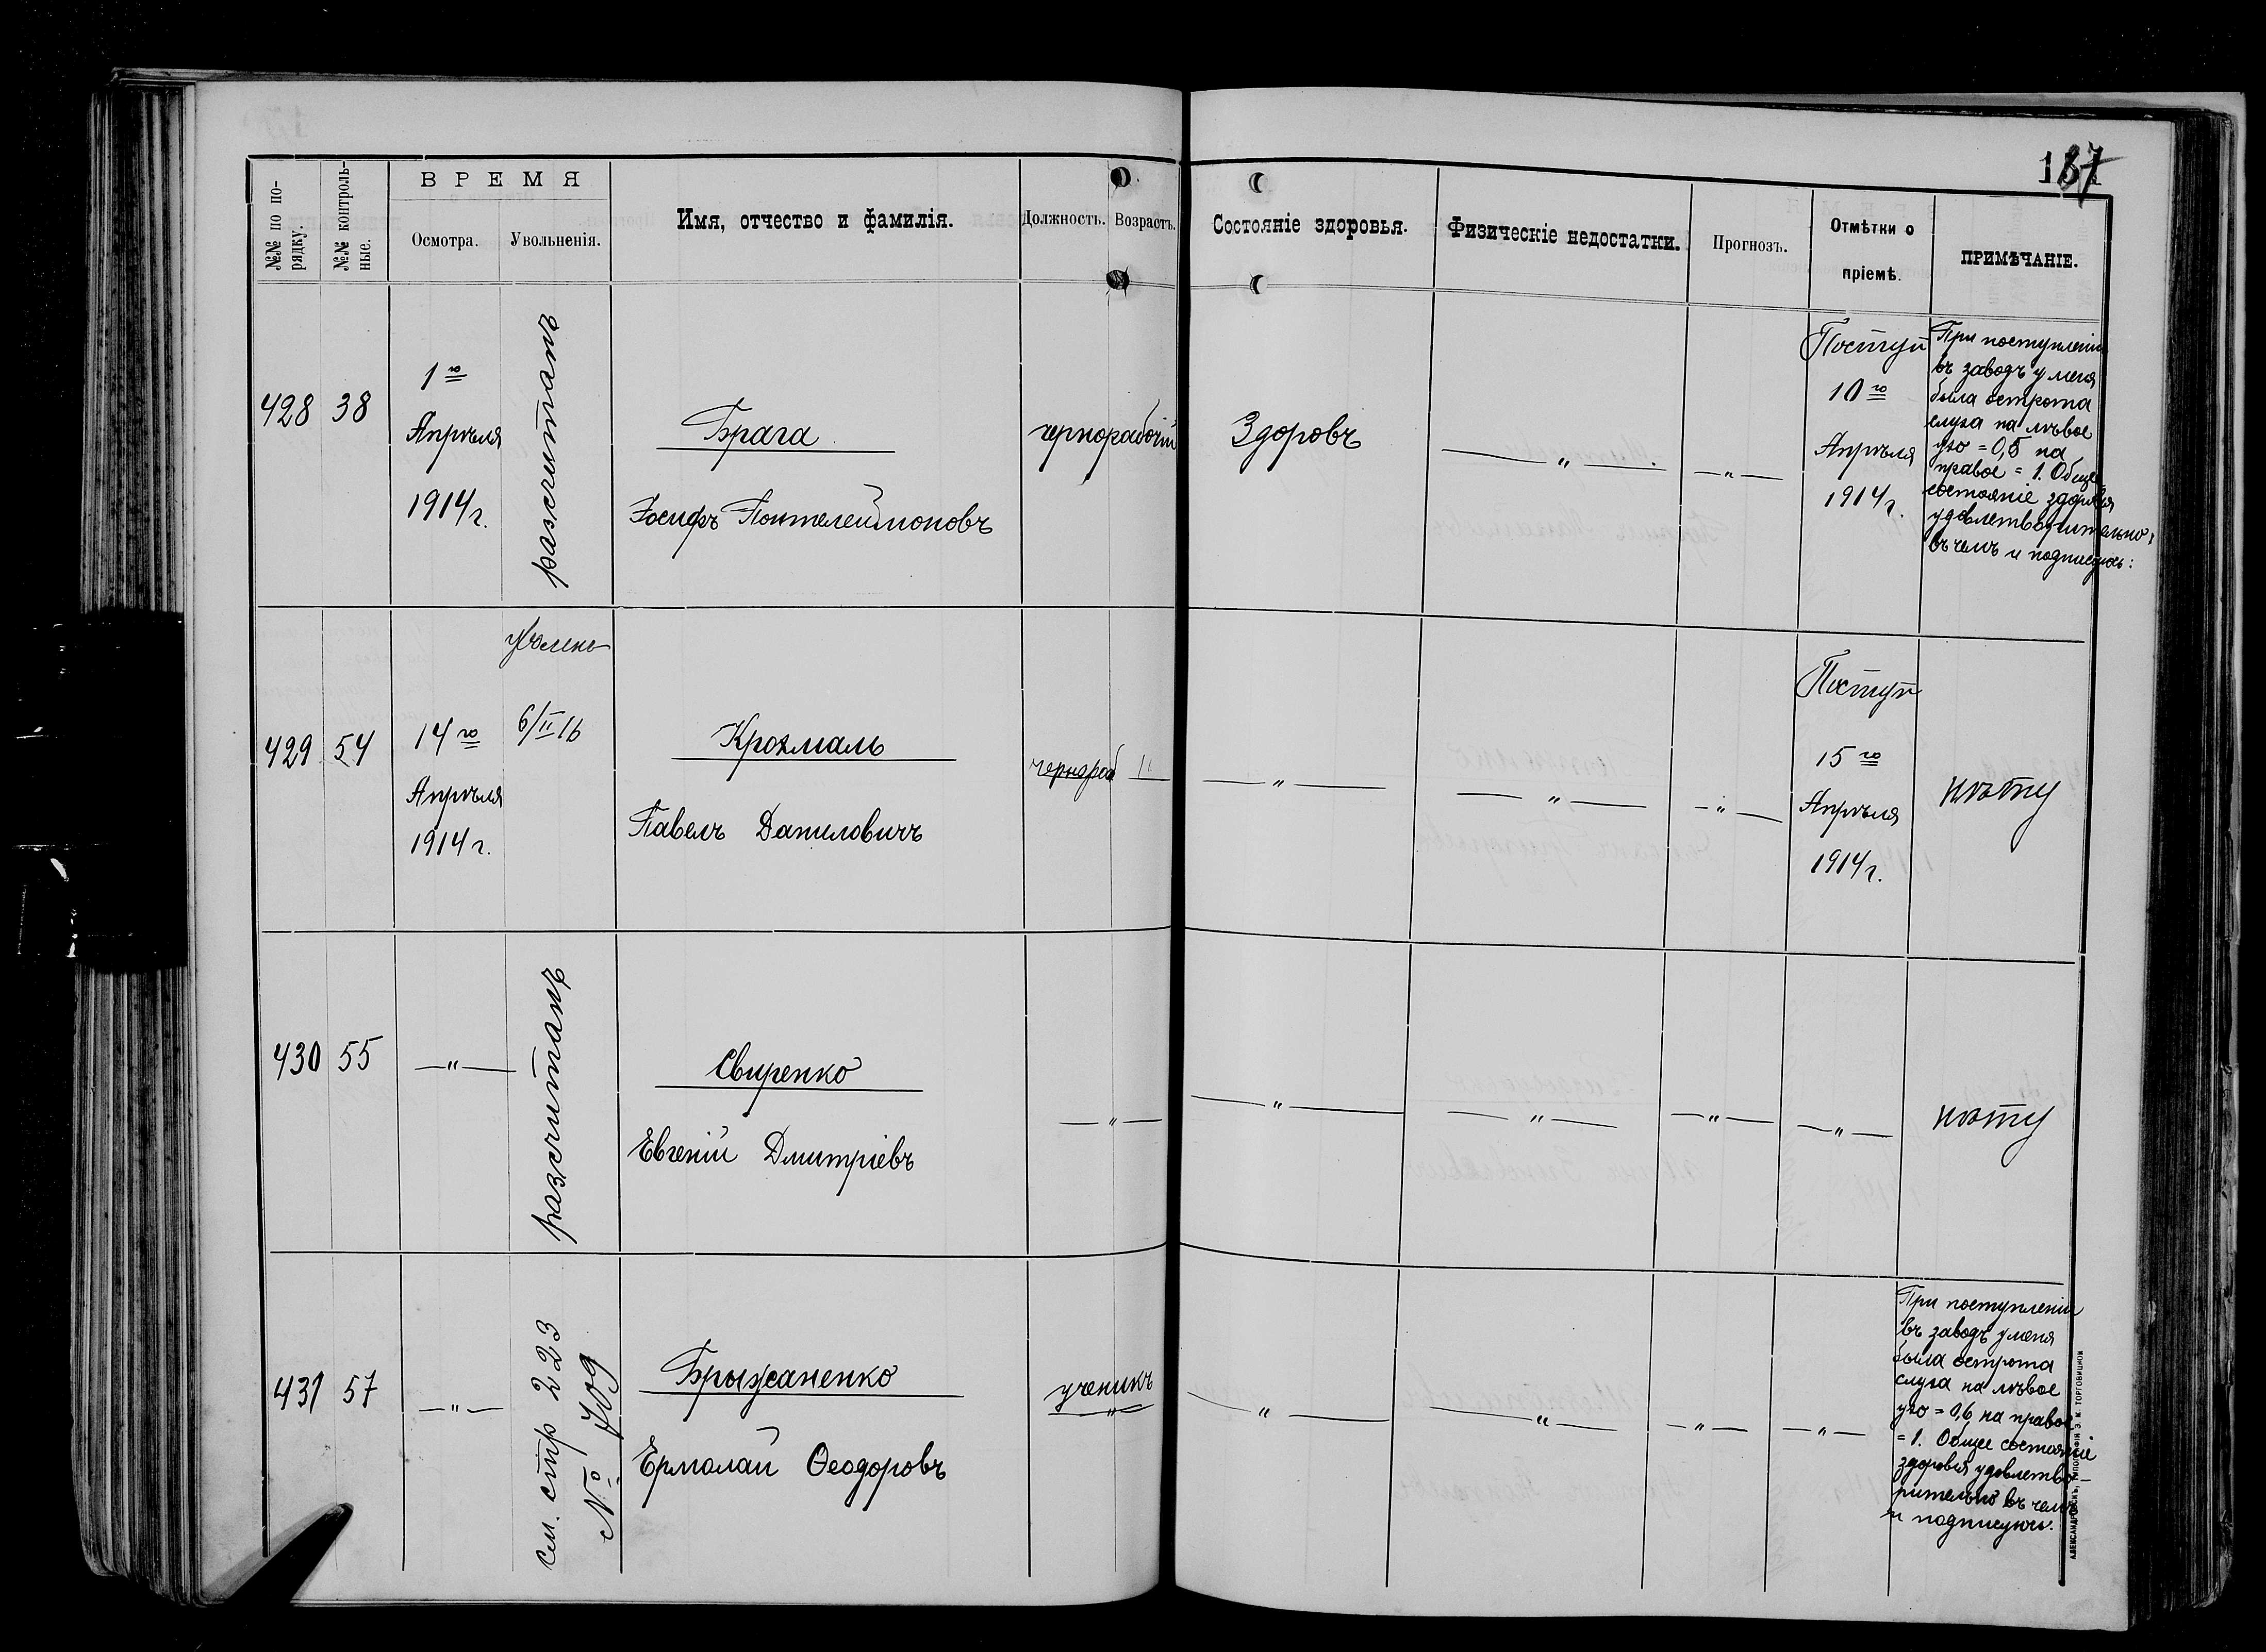 137
№№ по по-
рядку.
№№ контроль-
ные.
ВРЕМЯ
Осмотра.
Увольненія.
Имя, отчество и фамилія.
Должность.
Возрастъ.
Состояніе здоровья.
Физическіе недостатки.
Прогнозъ.
Отмѣтки о
пріемѣ.
ПРИМѢЧАНІЕ.
428
38
1го
Апрѣля
1914 г.
разсчитанъ
Брага
Іосифъ Пантелеймоновъ
чернорабочій
Здоровъ
— " —
— " —
Поступ
10го
Апрѣля
1914 г.
При поступленіи
въ заводъ у меня
была острота
слуха на лѣвое
ухо = 0,5 на
правое = 1. Общее
состояніе здоровья
удовлетворительно,
въ чемъ и подписуюсь:
429
54
14го
Апрѣля
1914 г.
6/II 16
Крохмаль
Павелъ Даниловичъ
чернораб
— " —
— " —
— " —
Поступ
15го
Апрѣля
1914 г.
нѣту
430
55
— " —
разсчитанъ
Свиренко
Евгеній Дмитріевъ
— " —
— " —
— " —
— " —
— " —
нѣту
431
57
— " —
см. стр 223
№ 709
Брыжаненко
Ермолай Ѳеодоровъ
ученикъ
— " —
— " —
— " —
— " —
При поступленіи
въ заводъ у меня
была острота
слуха на лѣвое
ухо = 0,6 на правое
= 1. Общее состояніе
здоровья удовлетво-
рительно въ чемъ
и подписуюсь.